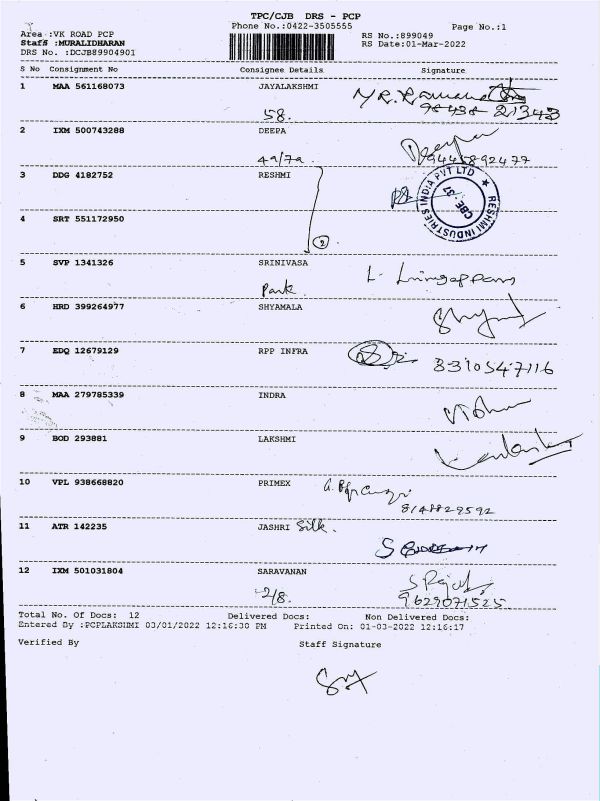 TPC/CJB DRS - PCP
Phone No.:0422-3505555 Page No.:1
Area :VK ROAD PCP
RS No.:899049
Staff :MURALIDHARAN
RS Date:01-Mar-2022
DRS No. :DCJB89904901
S No Consignment No Consignee Details Signature
1 MAA 561168073 JAYALAKSHMI
58. 98438-21343
2 IXM 500743288 DEEPA Deepa
4a/7a. 9445892477
3 DDG 4182752 RESHMI
RESHMI INDUSTRIES INDIA PVT LTD
CBE-37
4 SRT 551172950
2
5 SVP 1341326 SRINIVASA
Park
6 HRD 399264977 SHYAMALA
7 EDQ 12679129 RPP INFRA
3310547116
8 MAA 279785339 INDRA
9 BOD 293881 LAKSHMI
10 VPL 938668820 PRIMEX
8148829592
11 ATR 142235 JASHRI Silk.
12 IXM 501031804 SARAVANAN
2/8. 9629071525
Total No. Of Docs: 12 Delivered Docs: Non Delivered Docs:
Entered By :PCPLAKSHMI 03/01/2022 12:16:30 PM Printed On: 01-03-2022 12:16:17
Verified By Staff Signature